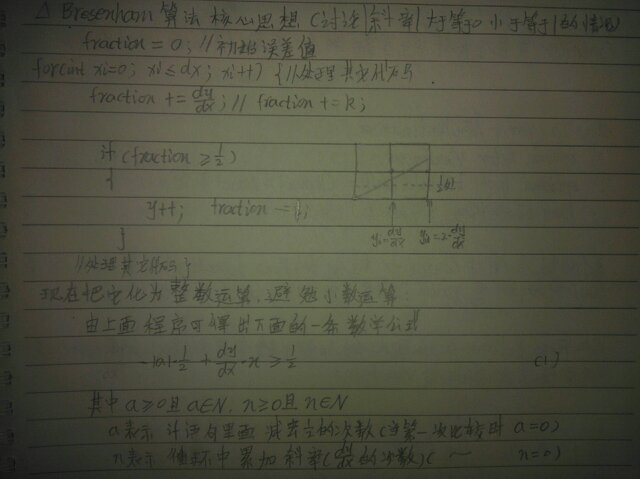 △ Bresenham 算法核心思想 (讨论|斜率|大于等于0 小于等于1的情况)
fraction = 0; //初始误差值
for(int xi=0; xi≤dx; xi++) { //处理其它代码
fraction += dy/dx; // fraction += k;
if (fraction ≥ 1/2)
{
y++; fraction -= 1;
}
1/2处
y₁=dy/dx y₂=2·dy/dx
//处理其它代码 }
现在把它化为整数运算,避免小数运算
由上面程序可得出下面的一条数学公式
+ dy/dx·n ≥ 1/2 (1)
其中 a≥0且a∈N, n≥0且n∈N
a表示 if语句里面 减去1的次数(当第一次比较时 a=0)
n表示 循环中累加斜率(dy/dx的次数)( ~ n=0)